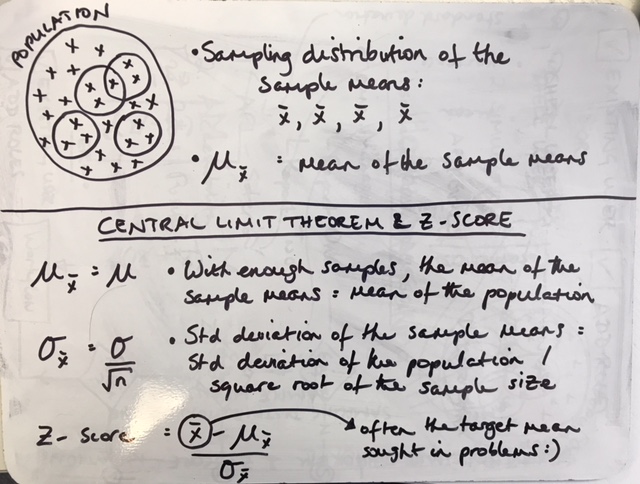 POPULATION
• Sampling distribution of the
sample means:
x̄, x̄, x̄, x̄
• μx̄ = mean of the sample means
CENTRAL LIMIT THEOREM & Z-SCORE
μx̄ = μ • With enough samples, the mean of the
sample means = mean of the population
σx̄ = σ/√n • Std deviation of the sample means =
std deviation of the population /
square root of the sample size
Z-score = (x̄ - μx̄)/σx̄ often the target mean
sought in problems :)